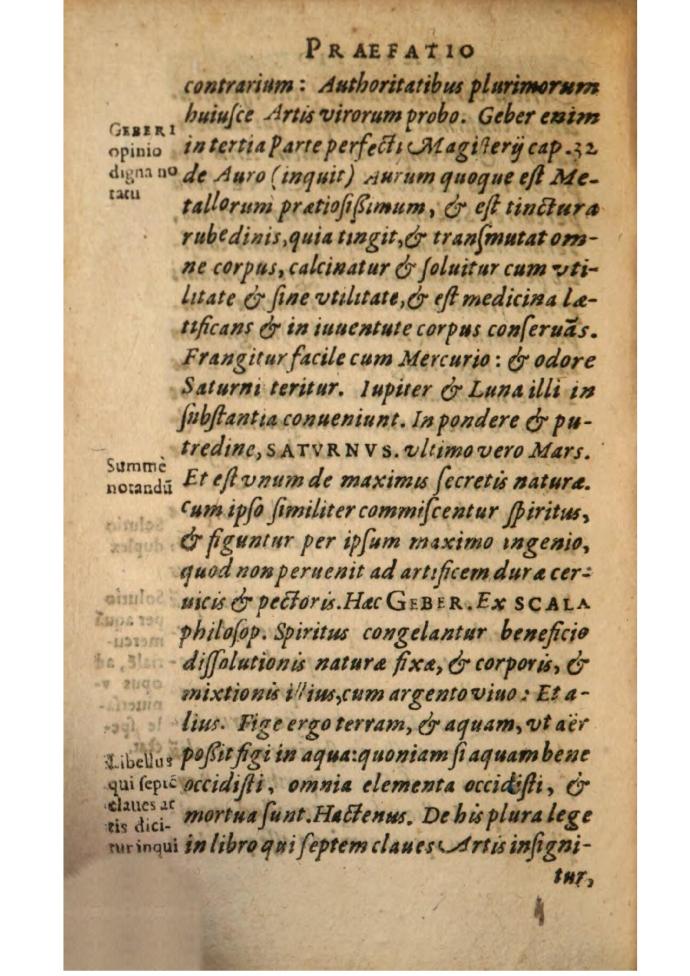 PRAEFATIO
contrarium: Authoritatibus plurimorum
huiuſce Artis virorum probo. Geber enim
in tertia Parte perfecti Magiſterij cap. 32
de Auro (inquit) Aurum quoque eſt Me-
tallorum prætioſißimum, & eſt tinctura
rubedinis, quia tingit, & tranſmutat om-
ne corpus, calcinatur & ſoluitur cum vti-
litate & ſine vtilitate, & eſt medicina læ-
tificans & in iuuentute corpus conſeruãs.
Frangitur facile cum Mercurio: & odore
Saturni teritur. Iupiter & Luna illi in
ſubſtantia conueniunt. In pondere & pu-
tredine, SATVRNVS. vltimo vero Mars.
Et eſt vnum de maximis ſecretis naturæ.
Cum ipſo ſimiliter commiſcentur ſpiritus,
& figuntur per ipſum maximo ingenio,
quod non peruenit ad artificem duræ cer-
uicis & pectoris. Hac GEBER. Ex SCALA
philoſop. Spiritus congelantur beneficio
diſſolutionis naturæ fixæ, & corporis, &
mixtionis illius, cum argento viuo: Et a-
lius. Fige ergo terram, & aquam, vt aër
poßit figi in aqua: quoniam ſi aquam bene
occidiſti, omnia elementa occidiſti, &
mortua ſunt. Hactenus. De his plura lege
in libro qui ſeptem claues Artis inſigni-
tur,
GEBERI
opinio
digna no
tatu
Summè
notandũ
Libellus
qui ſeptẽ
claues ar
tis dici-
tur inqui